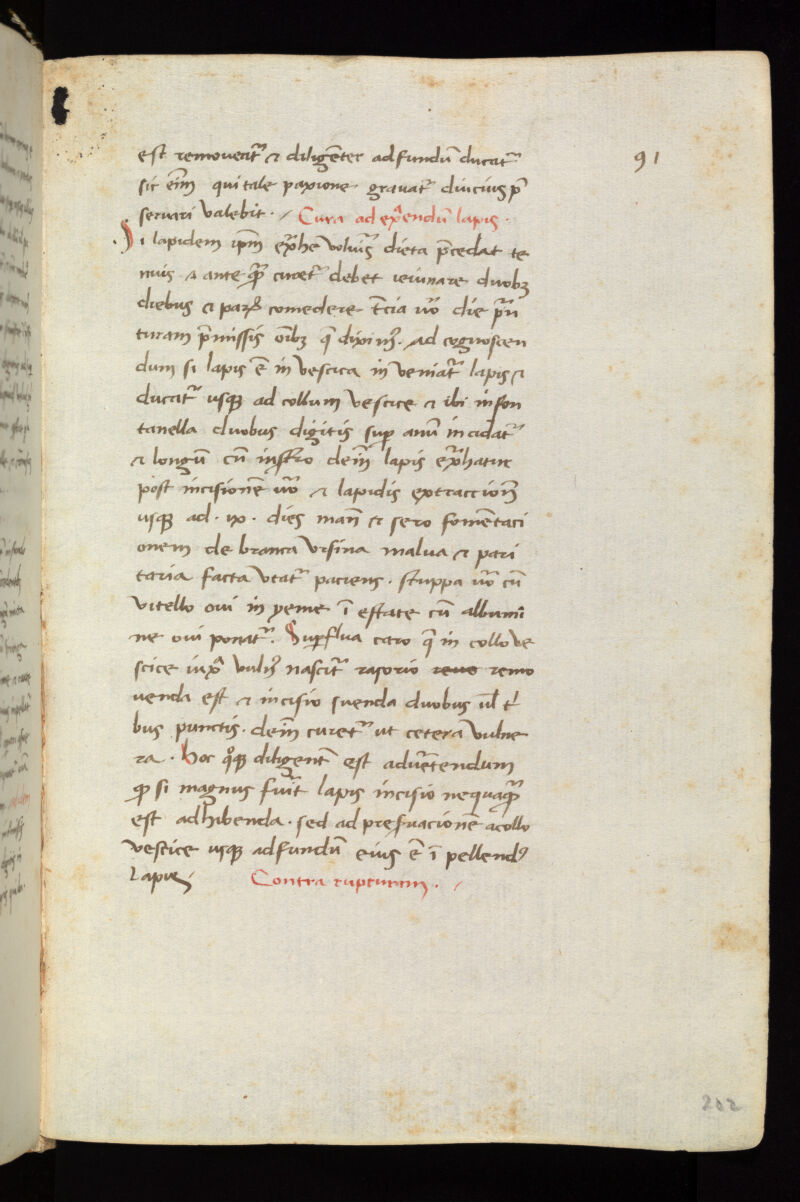 91
est removeat᷑ ⁊ diligẽter ad fundũ ducat᷑
sic em̃ qui tale paxione gravat᷑ diucius p̃
servari valebit · Cura ad ext᷑endũ lapis ·
Si lapidem ip̃m ext᷑he voluis᷑ dieta p̃cedat te
nuis ⁊ ante q̃ curet᷑ debet ieiunare duobꝫ
diebus ⁊ paꝝ comedere t̃cia ṽo die
turam p̃missis oĩbꝫ q̃ diximꝰ · Ad cognoscen
dum si lapis ẽ in vesica inveniat᷑ lapis ⁊
ducat᷑ usqꝫ ad collum vescice ⁊ ibi in fon
tanella duobus digitis sup̱ anũ incidat᷑
⁊ longũ cũ inst̃ro deiñ lapis ext᷑hatur
post incisionẽ ṽo ⁊ lapidis extraccionẽ
usqꝫ ad · ix · dies mañ ⁊ sero fomẽtaci
onem de branca ursina malua ⁊ pari
taria facta utat᷑ paciens · stuppa ṽo cũ
vitello oui in yeme ĩ estate cũ albumi
ne oui ponat᷑ · Sup̱flua caro q̃ in collo ve
scice iuxᷓ vulnꝰ nascit᷑ rasorio remo
venda est ⁊ incisio suenda duobus ul̃ t'
bus punctis · deiñ curet᷑ ut cetera vulne
ra · hoc q°qꝫ diligent̃ est advt̃endum
ꝙ si magnus fuit̃ lapis incisio nequaq̃
est adhibenda · sed ad prefuacionẽ a collo
vescice usqꝫ ad fundũ eius ẽ ĩpellendꝰ
lapis · Contra rupturam ·
202